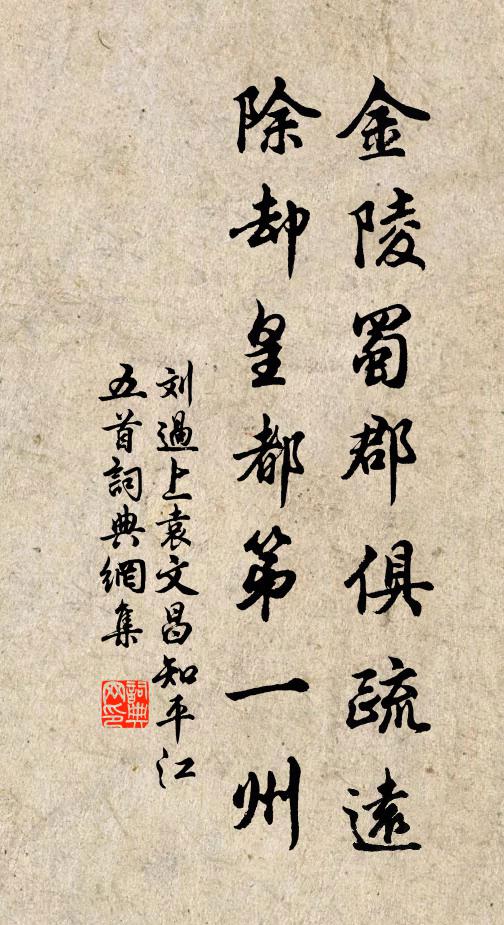 金陵蜀郡俱疏遠
除却皇都第一州
刘過上袁文昌知平江
五首詞典網集
詞典网印